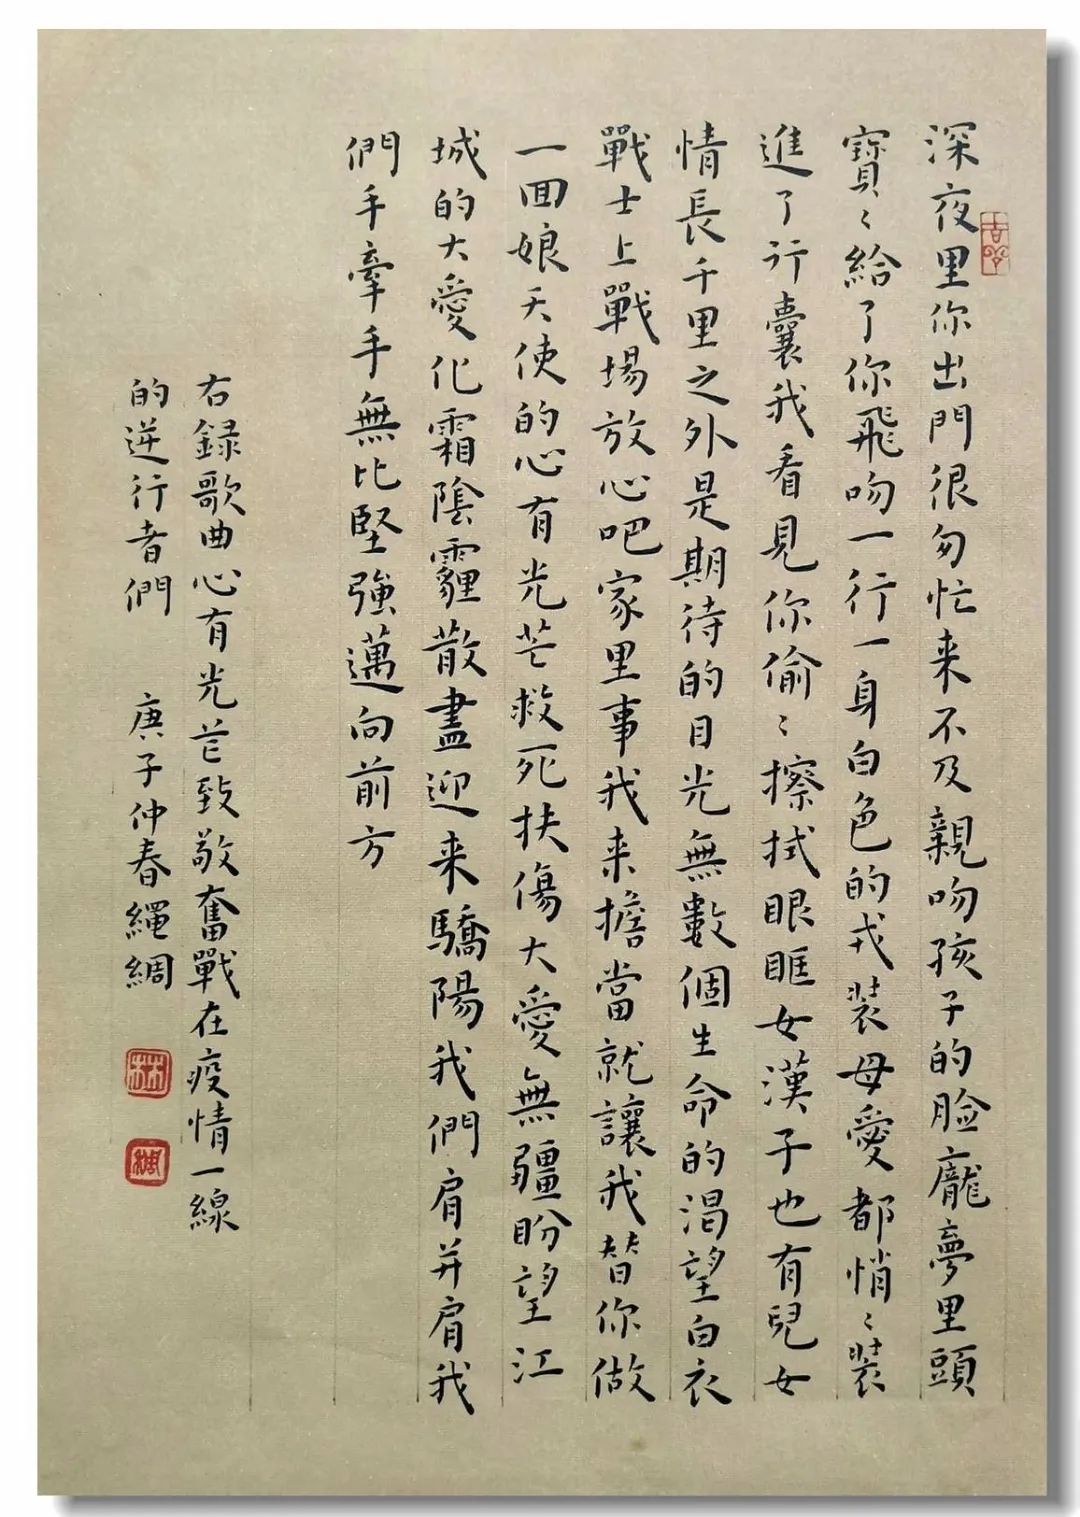 深夜里你出門很匆忙来不及親吻孩子的脸龐夢里頭
寶〻給了你飛吻一行一身白色的戎装母愛都悄〻装
進了行囊我看見你偷〻擦拭眼眶女漢子也有兒女
情長千里之外是期待的目光無數個生命的渴望白衣
戰士上戰場放心吧家里事我来擔當就讓我替你做
一回娘天使的心有光芒救死扶傷大愛無疆盼望江
城的大愛化霜陰霾散盡迎来驕陽我們肩并肩我
們手牽手無比堅強邁向前方
右録歌曲心有光芒致敬奮戰在疫情一線
的逆行者們 庚子仲春繩綢